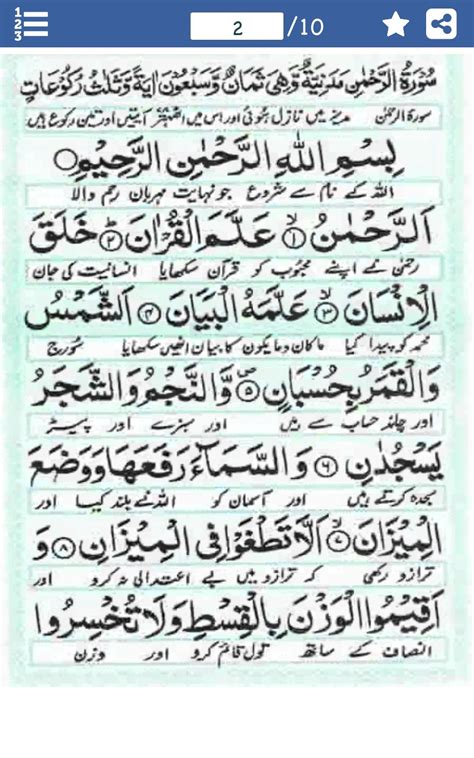 1 2 3 2 /10
سُوْرَةُ الرَّحْمٰنِ مَدَنِيَّةٌ وَّهِيَ ثَمَانٌ وَّسَبْعُوْنَ اٰيَةً وَّثَلٰثُ رُكُوْعَاتٍ
سورۃ الرحمٰن مدینے میں نازل ہوئی اور اس میں اٹھتر آیتیں اور تین رکوع ہیں
بِسْمِ اللهِ الرَّحْمٰنِ الرَّحِيْمِ
اللہ کے نام سے شروع جو نہایت مہربان رحم والا
اَلرَّحْمٰنُ ۙ۱ عَلَّمَ الْقُرْاٰنَ ؕ۲ خَلَقَ
رحمٰن نے اپنے محبوب کو قرآن سکھایا انسانیت کی جان
الْاِنْسَانَ ۙ۳ عَلَّمَهُ الْبَيَانَ ۴ اَلشَّمْسُ
محمد کو پیدا کیا ماکان ومایکون کا بیان انھیں سکھایا سورج
وَالْقَمَرُ بِحُسْبَانٍ ۵ وَّالنَّجْمُ وَالشَّجَرُ
اور چاند حساب سے ہیں اور سبزے اور پیڑ
يَسْجُدٰنِ ۶ وَالسَّمَآءَ رَفَعَهَا وَوَضَعَ
سجدہ کرتے ہیں اور آسمان کو اللہ نے بلند کیا اور
الْمِيْزَانَ ۙ۷ اَلَّا تَطْغَوْا فِي الْمِيْزَانِ ۸ وَ
ترازو رکھی کہ ترازو میں بے اعتدالی نہ کرو اور
اَقِيْمُوا الْوَزْنَ بِالْقِسْطِ وَلَا تُخْسِرُوا
انصاف کے ساتھ تول قائم کرو اور وزن